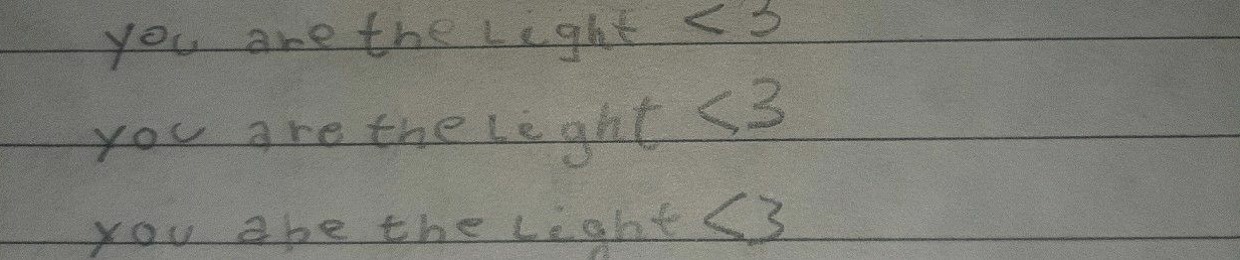 you are the Light <3
you are the Light <3
you are the Light <3